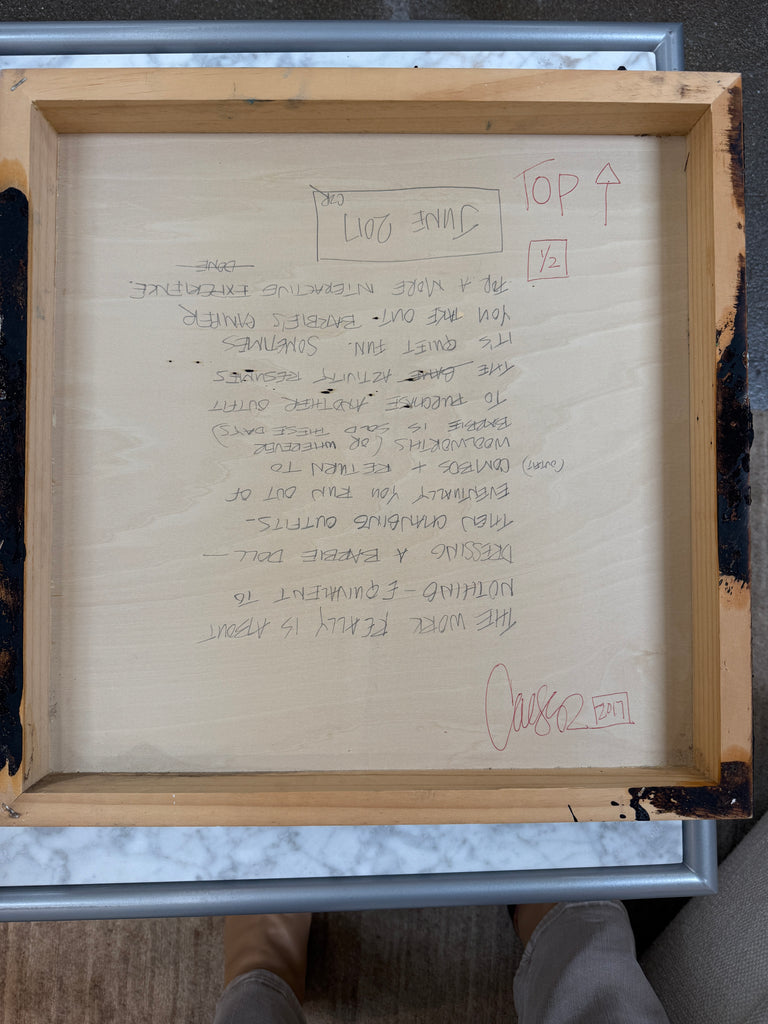 TOP ↑
1/2
THE WORK REALLY IS ABOUT
NOTHING – EQUIVALENT TO
DRESSING A BARBIE DOLL —
THEN CHANGING OUTFITS –
EVENTUALLY YOU RUN OUT OF
(OUTFIT) COMBOS + RETURN TO
WOOLWORTHS (OR WHEREVER
BARBIE IS SOLD THESE DAYS)
TO PURCHASE ANOTHER OUTFIT
THE GAME ACTIVITY RESUMES
IT'S QUIET FUN. SOMETIMES
YOU TAKE OUT BARBIE'S CAMPER
FOR A MORE INTERACTIVE EXPERIENCE.
DONE
JUNE 2017
CZR
2017